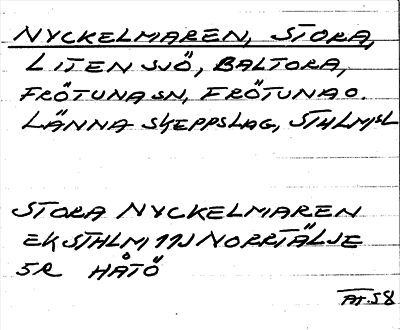 NYCKELMAREN, STORA,
LITEN SJÖ, BALTORA,
FRÖTUNA SN, FRÖTUNA O.
LÄNNA SKEPPSLAG, STHLMSL
STORA NYCKELMAREN
EK STHLM 11J NORRTÄLJE
5R HÅTÖ
AT. 58